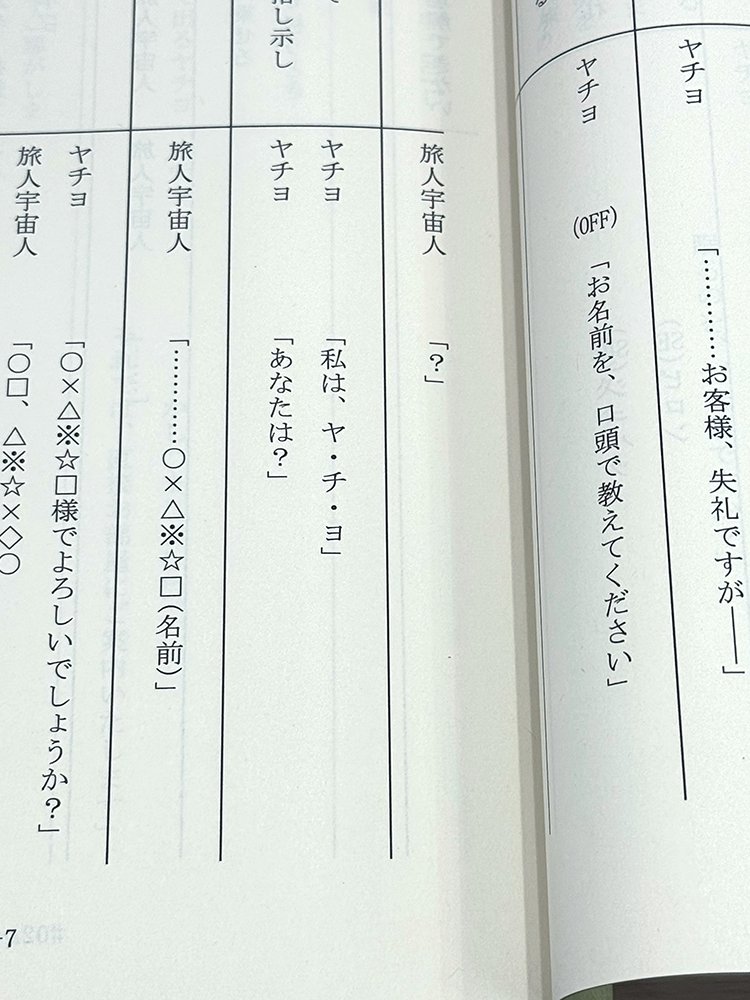 ヤチヨ 「…………お客様、失礼ですが――」
ヤチヨ (OFF) 「お名前を、口頭で教えてください」
旅人宇宙人 「？」
ヤチヨ 「私は、ヤ・チ・ヨ」
指し示し
ヤチヨ 「あなたは？」
旅人宇宙人 「…………○×△※☆□(名前)」
ヤチヨ 「○×△※☆□様でよろしいでしょうか？」
旅人宇宙人 「○□、△※☆×◇○
-7